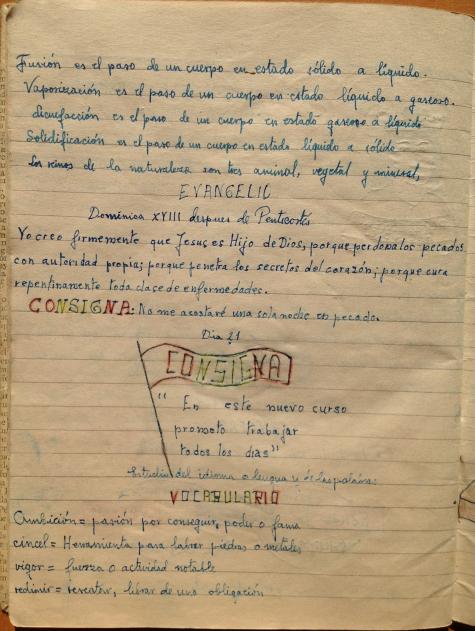 Fusión es el paso de un cuerpo en estado sólido a líquido.
Vaporización es el paso de un cuerpo en estado líquido a gaseoso.
Licuefacción es el paso de un cuerpo en estado gaseoso a líquido
Solidificación es el paso de un cuerpo en estado líquido a sólido
Los reinos de la naturaleza son tres animal, vegetal y mineral,
EVANGELIO
Dominica XVIII despues de Pentecostés
Yo creo firmemente que Jesus es Hijo de Dios, porque perdona los pecados
con autoridad propia; porque penetra los secretos del corazón; porque cura
repentinamente toda clase de enfermedades.
CONSIGNA: No me acostaré una sola noche en pecado.
Dia 21
CONSIGNA
"En este nuevo curso
prometo trabajar
todos los dias"
Estudio del idioma o lengua y de las palabras
VOCABULARIO
Ambición = pasión por conseguir, poder o fama
cincel = Herramienta para labrar piedras o metales
vigor = fuerza o actividad notable
redimir = rescatar, librar de una obligación